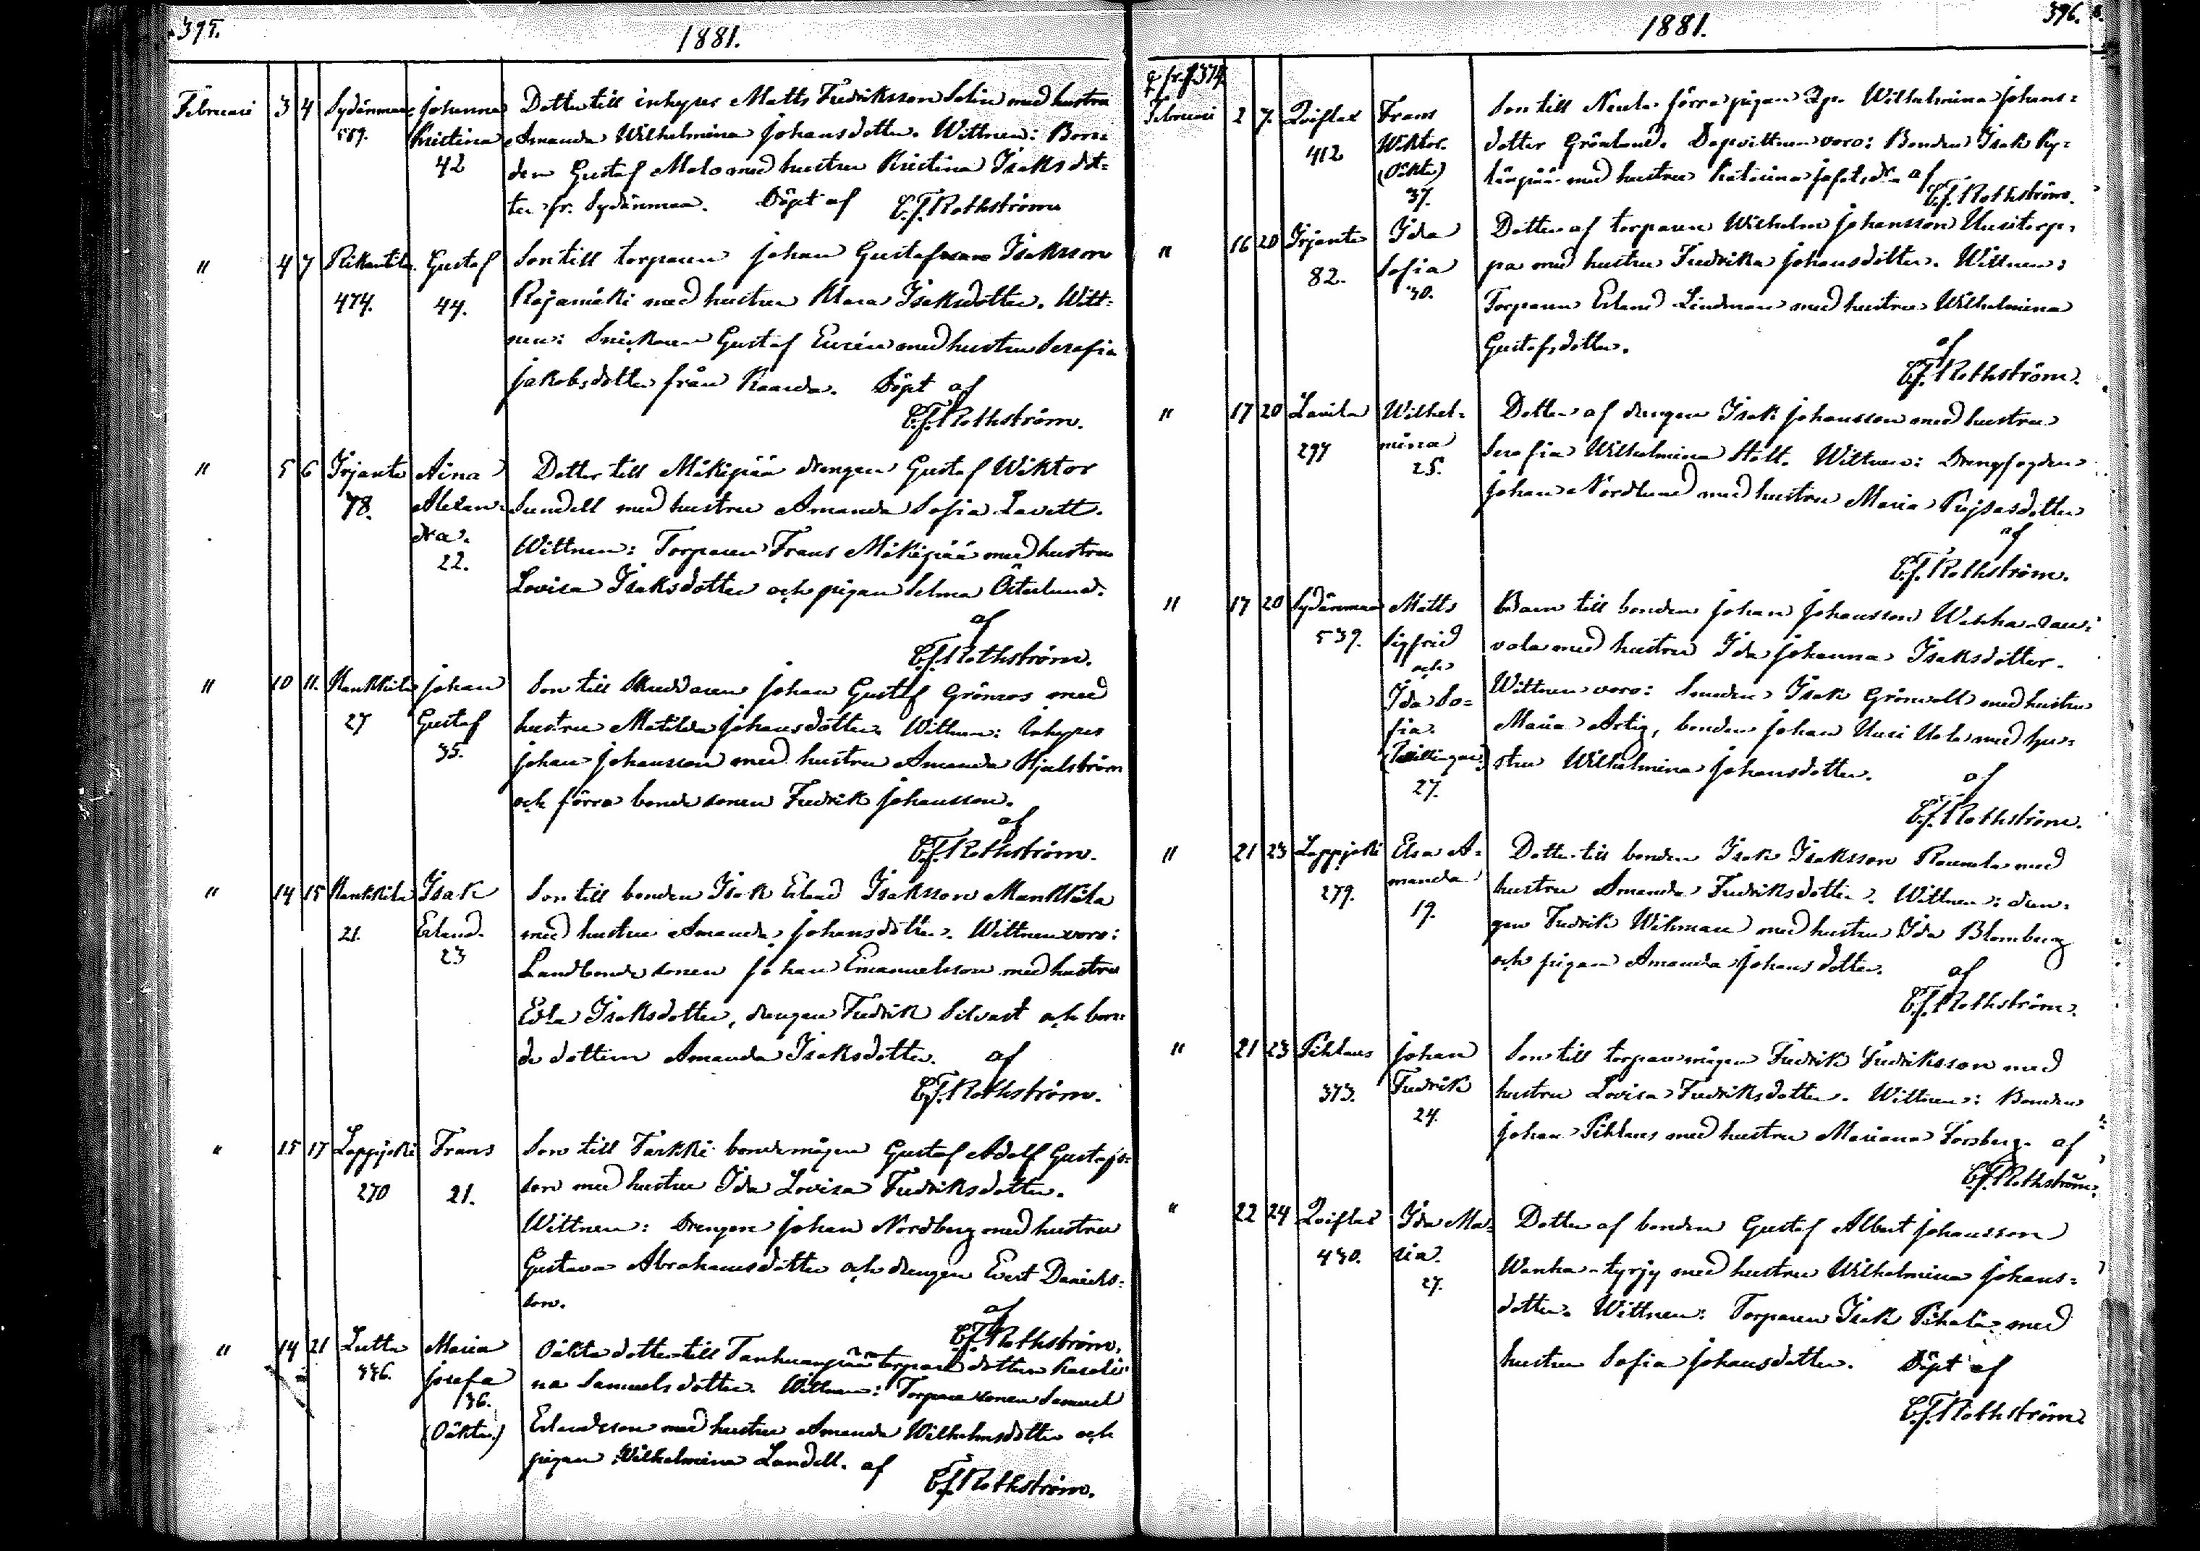 395.
1881.
Februari 3 4 Sydänmaa Johanna Dotter till inhyses Matts Fredriksson Salin med hustru
569. Kristina Amanda Wilhelmina Johansdotter. Wittnen: Bon-
42 den Gustaf Malo med hustru Kristina Isaksdot-
ter fr. Sydänmaa. Döpt af C.J. Rothström
" 4 7 Rikantila Gustaf Son till torparen Johan Gustafsson Isaksson
474. 44. Rajamäki med hustru Klara Isaksdotter. Witt-
nen: Snickaren Gustaf Eurén med hustru Serafia
Jakobsdotter från Kauda. Döpt af
C.J. Rothström.
" 5 6 Irjanto Aina Dotter till Mäkipää drengen Gustaf Wiktor
78. Alexan- Sundell med hustru Amanda Sofia Lavett.
dra. Wittnen: Torparen Frans Mäkipää med hustru
22. Lovisa Isaksdotter och pigan Selma Österlund.
af
C.J. Rothström.
" 10 11. Mankkila Johan Son till Skräddaren Johan Gustaf Grönroos med
27 Gustaf hustru Matilda Johansdotter. Wittnen: Inhyses
35. Johan Johansson med hustru Amanda Hjulström
och förra bondesonen Fredrik Johansson.
af
C.J. Rothström.
" 14 15 Mankkila Isak Son till bonden Isak Erland Isaksson Mankkila
21. Erland. med hustru Amanda Johansdotter. Wittnen voro:
23 Landbondesonen Johan Emanuelsson med hustru
Edla Isaksdotter, drengen Fredrik Silvast och bon-
de dottern Amanda Isaksdotter. af
C.J. Rothström.
" 15 17 Lappijoki Frans Son till Tarkki bondemågen Gustaf Adolf Gustafs-
270 21. son med hustru Ida Lovisa Fredriksdotter.
Wittnen: Drengen Johan Nordberg med hustru
Gustava Abrahamsdotter och drengen Evert Daniels-
son. af
C.J. Rothström.
" 14 21 Lutta Maria Oäkta dotter till Tanhuanpää torpare dottern Karoli-
336. Josefa na Samuelsdotter. Wittnen: Torparesonen Samuel
36. Erlandsson med hustru Amanda Wilhelmsdotter och
(Oäkta.) pigan Wilhelmina Lundell. af C.J. Rothström.
396.
1881.
fr. p 374.
Februari 2 7. Qviflax Frans Son till Neula förra pigan Wilhelmina Johans-
412 Wiktor. dotter Grönlund. Dopvittnen voro: Bonden Isak Ky-
(Oäkta) länpää med hustru Katarina Jafetsdr. af
37. C.J. Rothström.
" 16 20 Irjanto Ida Dotter af torparen Wilhelm Johansson Uusitorp-
82. Sofia pa med hustru Fredrika Johansdotter. Wittnen:
30. Torparen Erland Lindman med hustru Wilhelmina
Gustafsdotter. af
C.J. Rothström.
" 17 20 Lavila Wilhel- Dotter af drengen Isak Johansson med hustru
297 mina Serafia Wilhelmina Hölt. Wittnen: Drengfogden
25. Johan Nordlund med hustru Maria Kajsasdotter
af
C.J. Rothström.
" 17 20 Sydänmaa Matts Barn till bonden Johan Johansson Wanha-
539. Sigfrid vola med hustru Ida Johanna Isaksdotter.
och
Ida So- Wittnen voro: Smeden Isak Grönvall med hustru
fia. Maria Artig, bonden Johan Uusi Uola med hu-
(Tvillingar) stru Wilhelmina Johansdotter. af
27. C.J. Rothström.
" 21 23 Lappijoki Elsa A- Dotter till bonden Isak Isaksson Raumola med
279. manda hustru Amanda Fredriksdotter. Wittnen: dren-
19. gen Fredrik Wikman med hustru Ida Blomberg
och pigan Amanda Johansdotter. af
C.J. Rothström.
" 21 23 Pihlaus Johan Son till torparemågen Fredrik Fredriksson med
373. Fredrik hustru Lovisa Fredriksdotter. Wittnen: Bonden
24. Johan Pihlaus med hustru Mariana Forsberg. af
C.J. Rothström.
" 22 24 Qviflax Ida Ma- Dotter af bonden Gustaf Albert Johansson
430. ria. Wanha-tyrjy med hustru Wilhelmina Johans-
27. dotter. Wittnen: Torparen Isak Pihala med
hustru Sofia Johansdotter. Döpt af
C.J. Rothström.